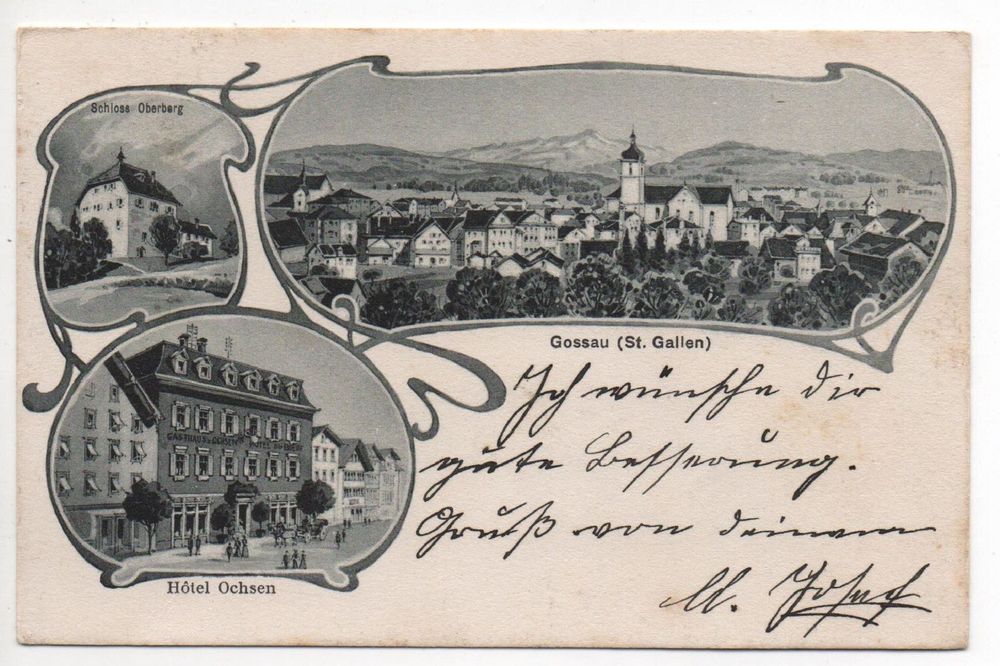 Schloss Oberberg
Gossau (St. Gallen)
GASTHAUS Z. OCHSEN HOTEL
Hôtel Ochsen
Ich wünsche dir
gute Besserung.
Gruß von deinem
Josef